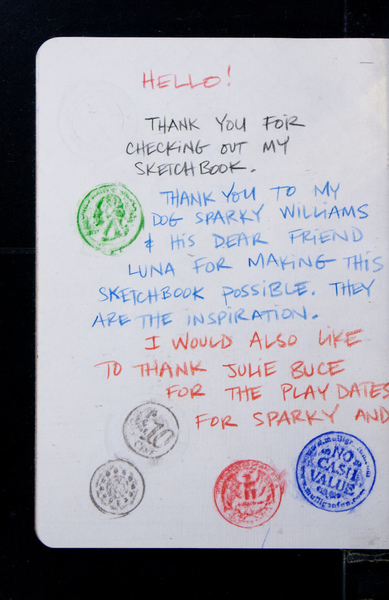 HELLO!
THANK YOU FOR
CHECKING OUT MY
SKETCHBOOK.
THANK YOU TO MY
DOG SPARKY WILLIAMS
& HIS DEAR FRIEND
LUNA FOR MAKING THIS
SKETCHBOOK POSSIBLE. THEY
ARE THE INSPIRATION.
I WOULD ALSO LIKE
TO THANK JULIE BUCE
FOR THE PLAY DATES
FOR SPARKY AND
NO
CASH
VALUE